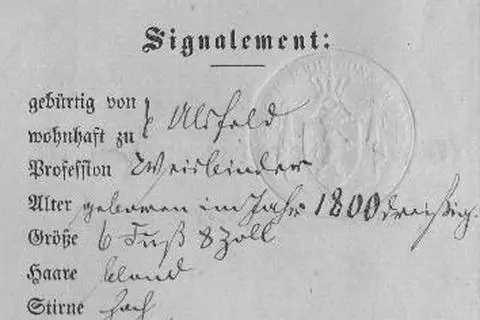 Signalement:
gebürtig von } Alsfeld
wohnhaft zu
Profession Weisbinder
Alter geboren im Jahr 1800 dreißig.
Größe 6 Fuß 8 Zoll
Haare blond
Stirne hoch